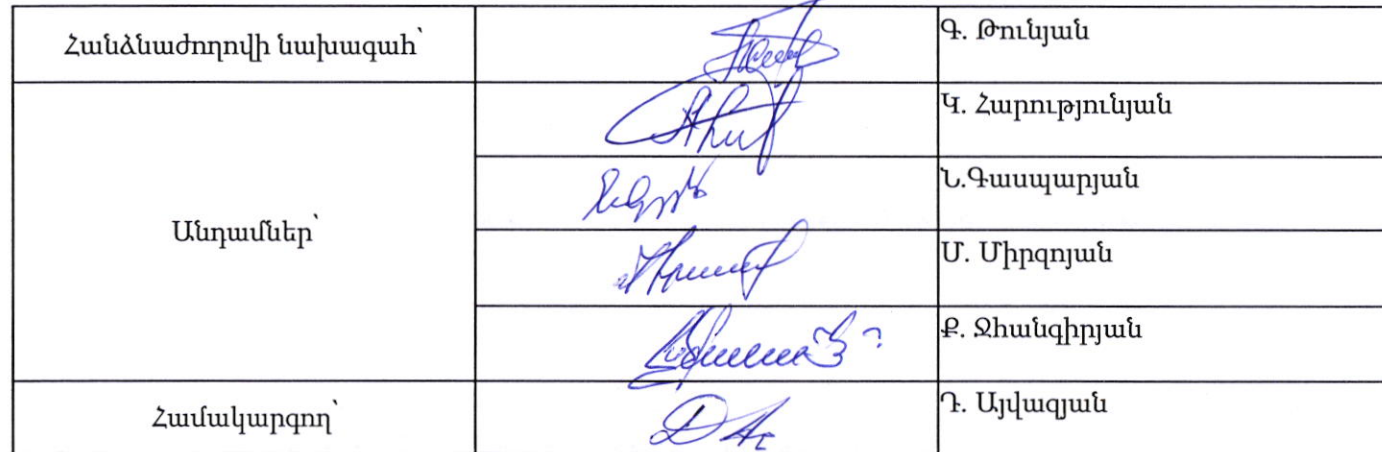 Հանձնաժողովի նախագահ՝
Գ. Թունյան
Անդամներ՝
Կ. Հարությունյան
Ն.Գասպարյան
Մ. Միրզոյան
Ք. Ջհանգիրյան
Համակարգող՝
Դ. Այվազյան